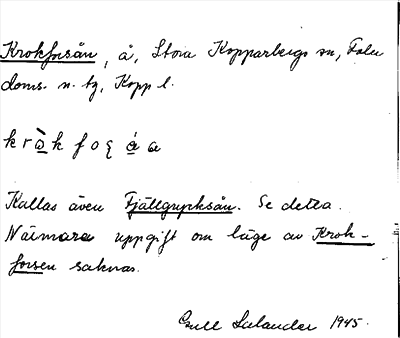 Krokforsån, å, Stora Kopparbergs sn, Falu
doms. n. tg, Kopp l.
Kallas även Fjällgrycksån. Se detta.
Närmare uppgift om läge av Krok-
forsen saknas.
Gull Salander 1945.